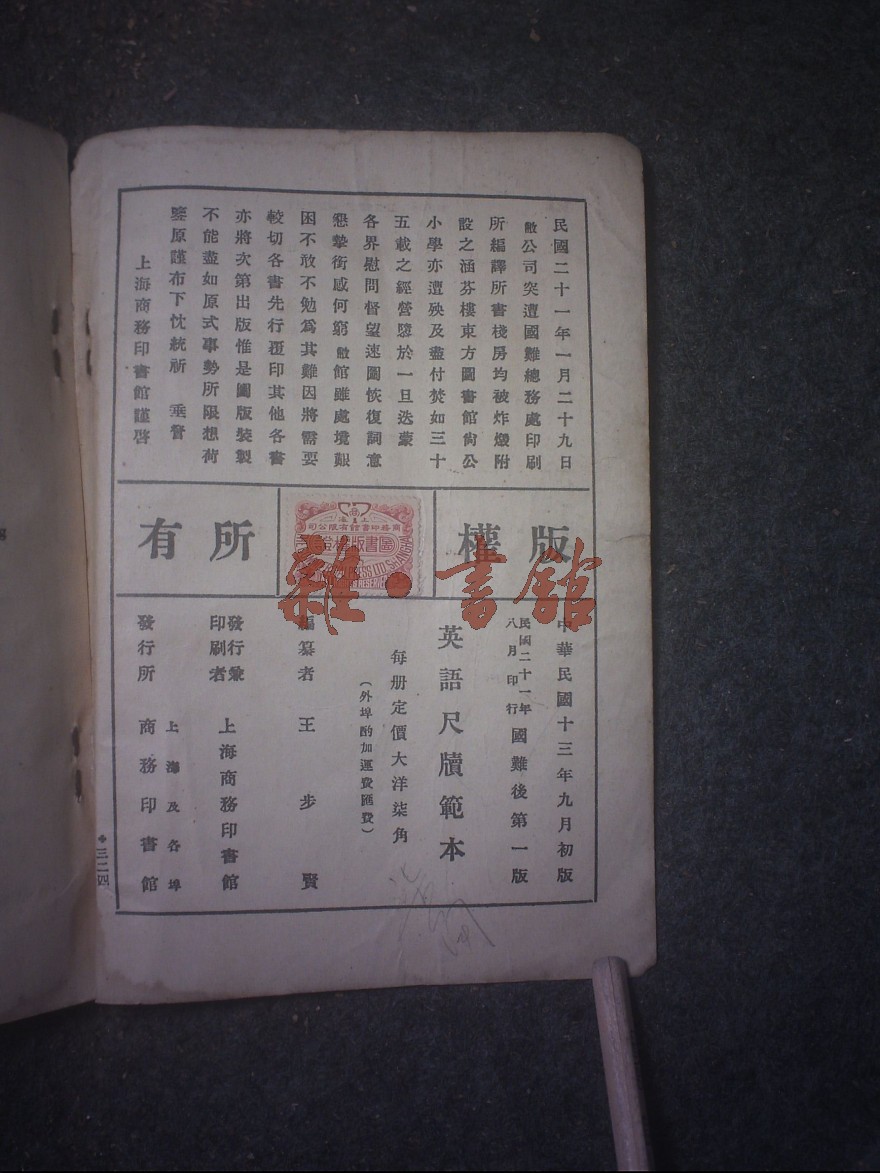 民國二十一年一月二十九日
敝公司突遭國難總務處印刷
所編譯所書棧房均被炸燬附
設之涵芬樓東方圖書館尙公
小學亦遭殃及盡付焚如三十
五載之經營隳於一旦迭蒙
各界慰問督望速圖恢復詞意
懇摯銜感何窮敝館雖處境艱
困不敢不勉爲其難因將需要
較切各書先行覆印其他各書
亦將次第出版惟是圖版裝製
不能盡如原式事勢所限想荷
鑒原謹布下忱統祈 垂詧
上海商務印書館謹啓
版權所有
上海
商務印書館有限公司
圖書版權證
雜·書館
中華民國十三年九月初版
民國二十一年八月印行 國難後第一版
英語尺牘範本
每册定價大洋柒角
(外埠酌加運費匯費)
編纂者 王步賢
發行兼印刷者 上海商務印書館
發行所 上海及各埠 商務印書館
三二四